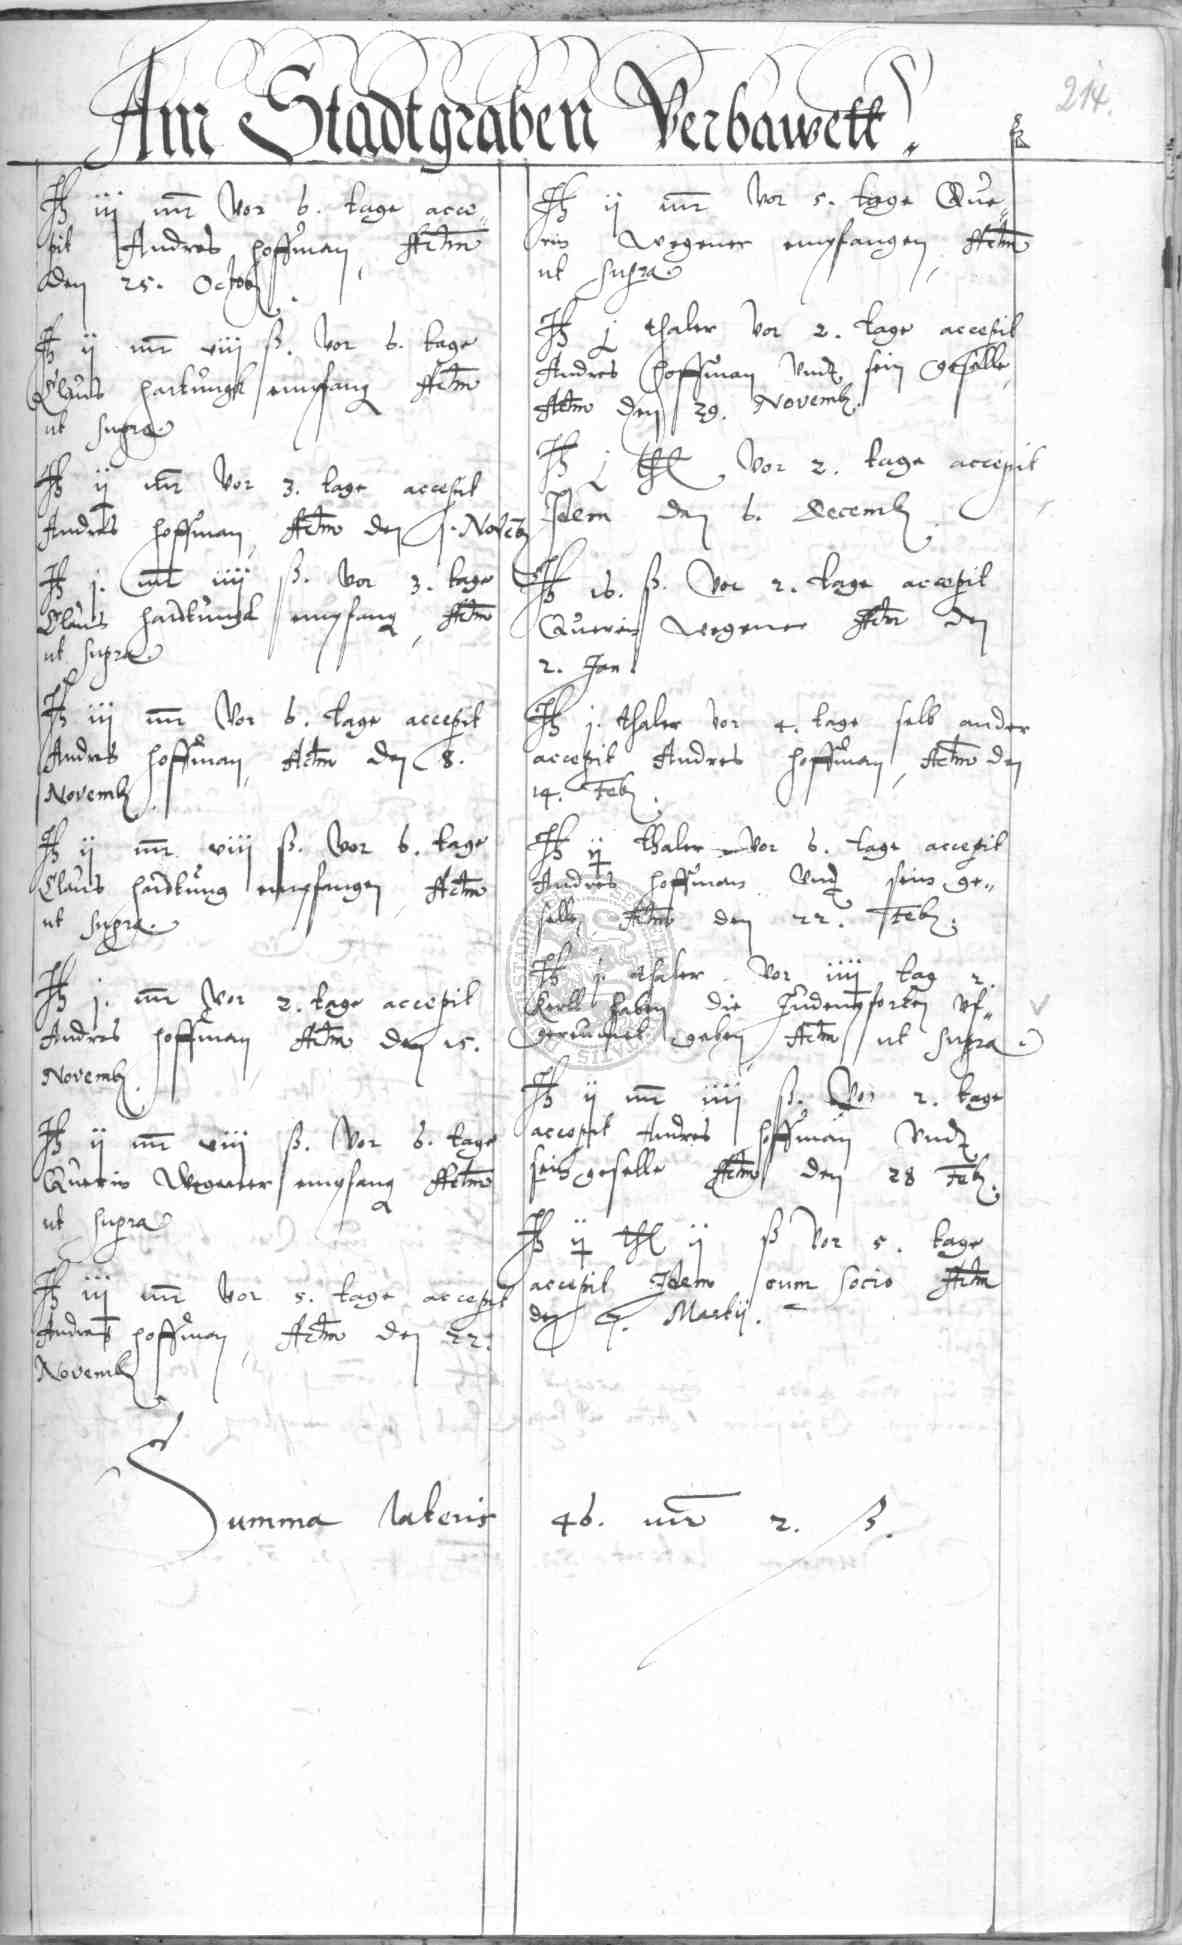 214.
Am Stadtgraben Verbawett.
iij mr vor 6. tage acce„
pit Andres Hoffman, Actm
den 25. Octob.
ij mr viij ß. vor 6. tage
Claus empfang Actm
ut supra
ij mr vor 3. tage accepit
Andres Hoffman, Actm den 1. Novēb
j. mr iiij ß. vor 3. tage
Claus empfang, Actm
ut supra.
iij mr vor 6. tage accepit
Andres Hoffman, Actm den 8.
Novemb.
ij mr viij ß. vor 6. tage
Claus empfangen, Actm
ut supra.
j. mr vor 2. tage accepit
Andres Hoffman Actm den 15.
Novemb.
ij mr viij ß. vor 6. tage
Queris Wegener empfang Actm
ut supra
iij mr vor 5. tage accepit
Andres Hoffman, Actm den 22.
Novemb
ij mr vor 5. tage Que„
ris Wegener empfangen, Actm
ut supra.
j thaler vor 2. tage accepit
Andres Hoffman vnd sein geselle,
Actm den 29. Novemb.
j thl vor 2. tage accepit
Idem den 6. Decemb
16. ß. vor 2. tage accepit
Queris Wegener Actm den
2. Jan.
j. thaler vor 4. tage selb ander
accepit Andres Hoffman, Actm den
14. Feb.
ij thaler vor 6. tage accepit
Andres Hoffman vnd sein ge„
selle, Actm den 22. Feb.
j. thaler vor iiij tag 2.
Kerll haben die Judenpforten vf„
gerumet gaben, Actm ut supra.
ij mr iiij ß. vor 2. tage
accepit Andres Hoffman vnd
sein geselle Actm den 28 Feb.
ij thl ij ß vor 5. tage
accepit Idem cum socio Actm
den Martij.
Summa lateris 46. mr 2. ß.